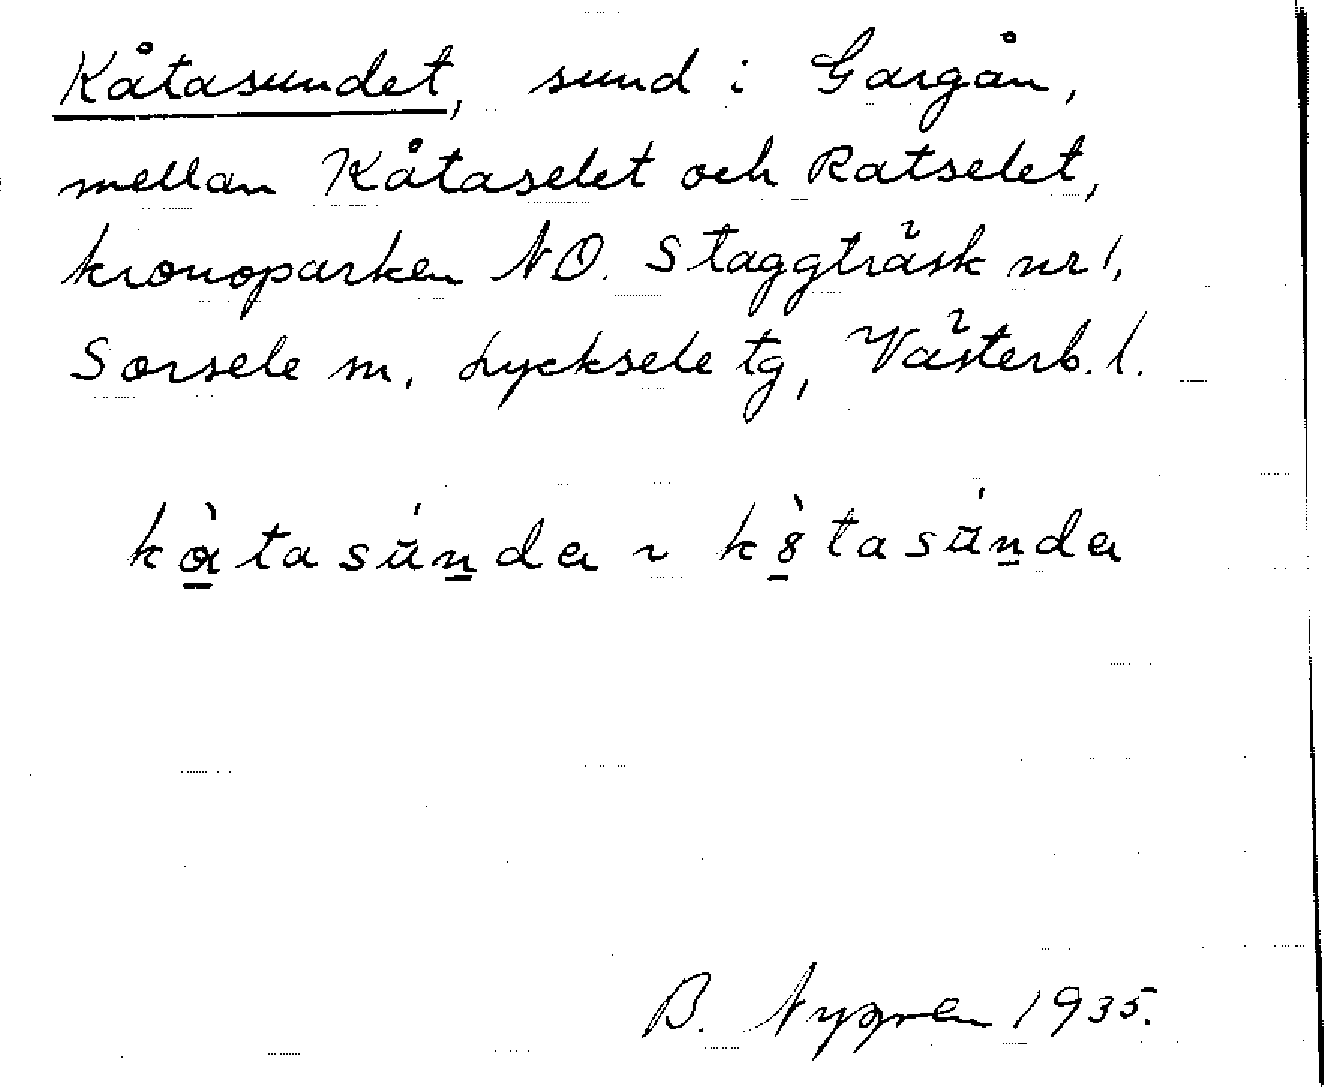 Kåtasundet, sund i Gargån,
mellan Kåtaselet och Ratselet,
kronoparken NO. Staggträsk nr 1,
Sorsele sn, Lycksele tg, Västerb. l.
B. Nygren 1935.